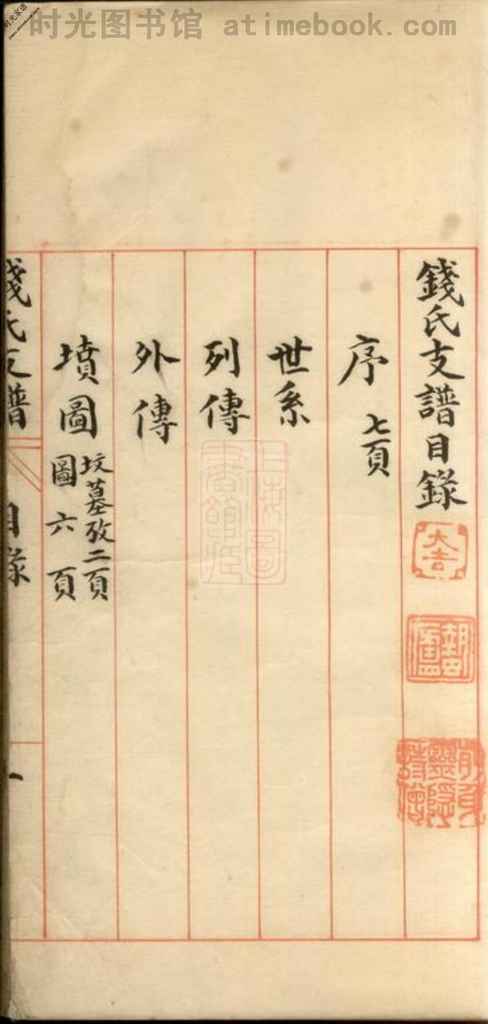 时光图书馆 atimebook.com
錢氏支譜目錄
大吉
序 七頁
世系
列傳
外傳
墳圖 坟墓攷二頁
圖六頁
錢氏支譜 目錄 一